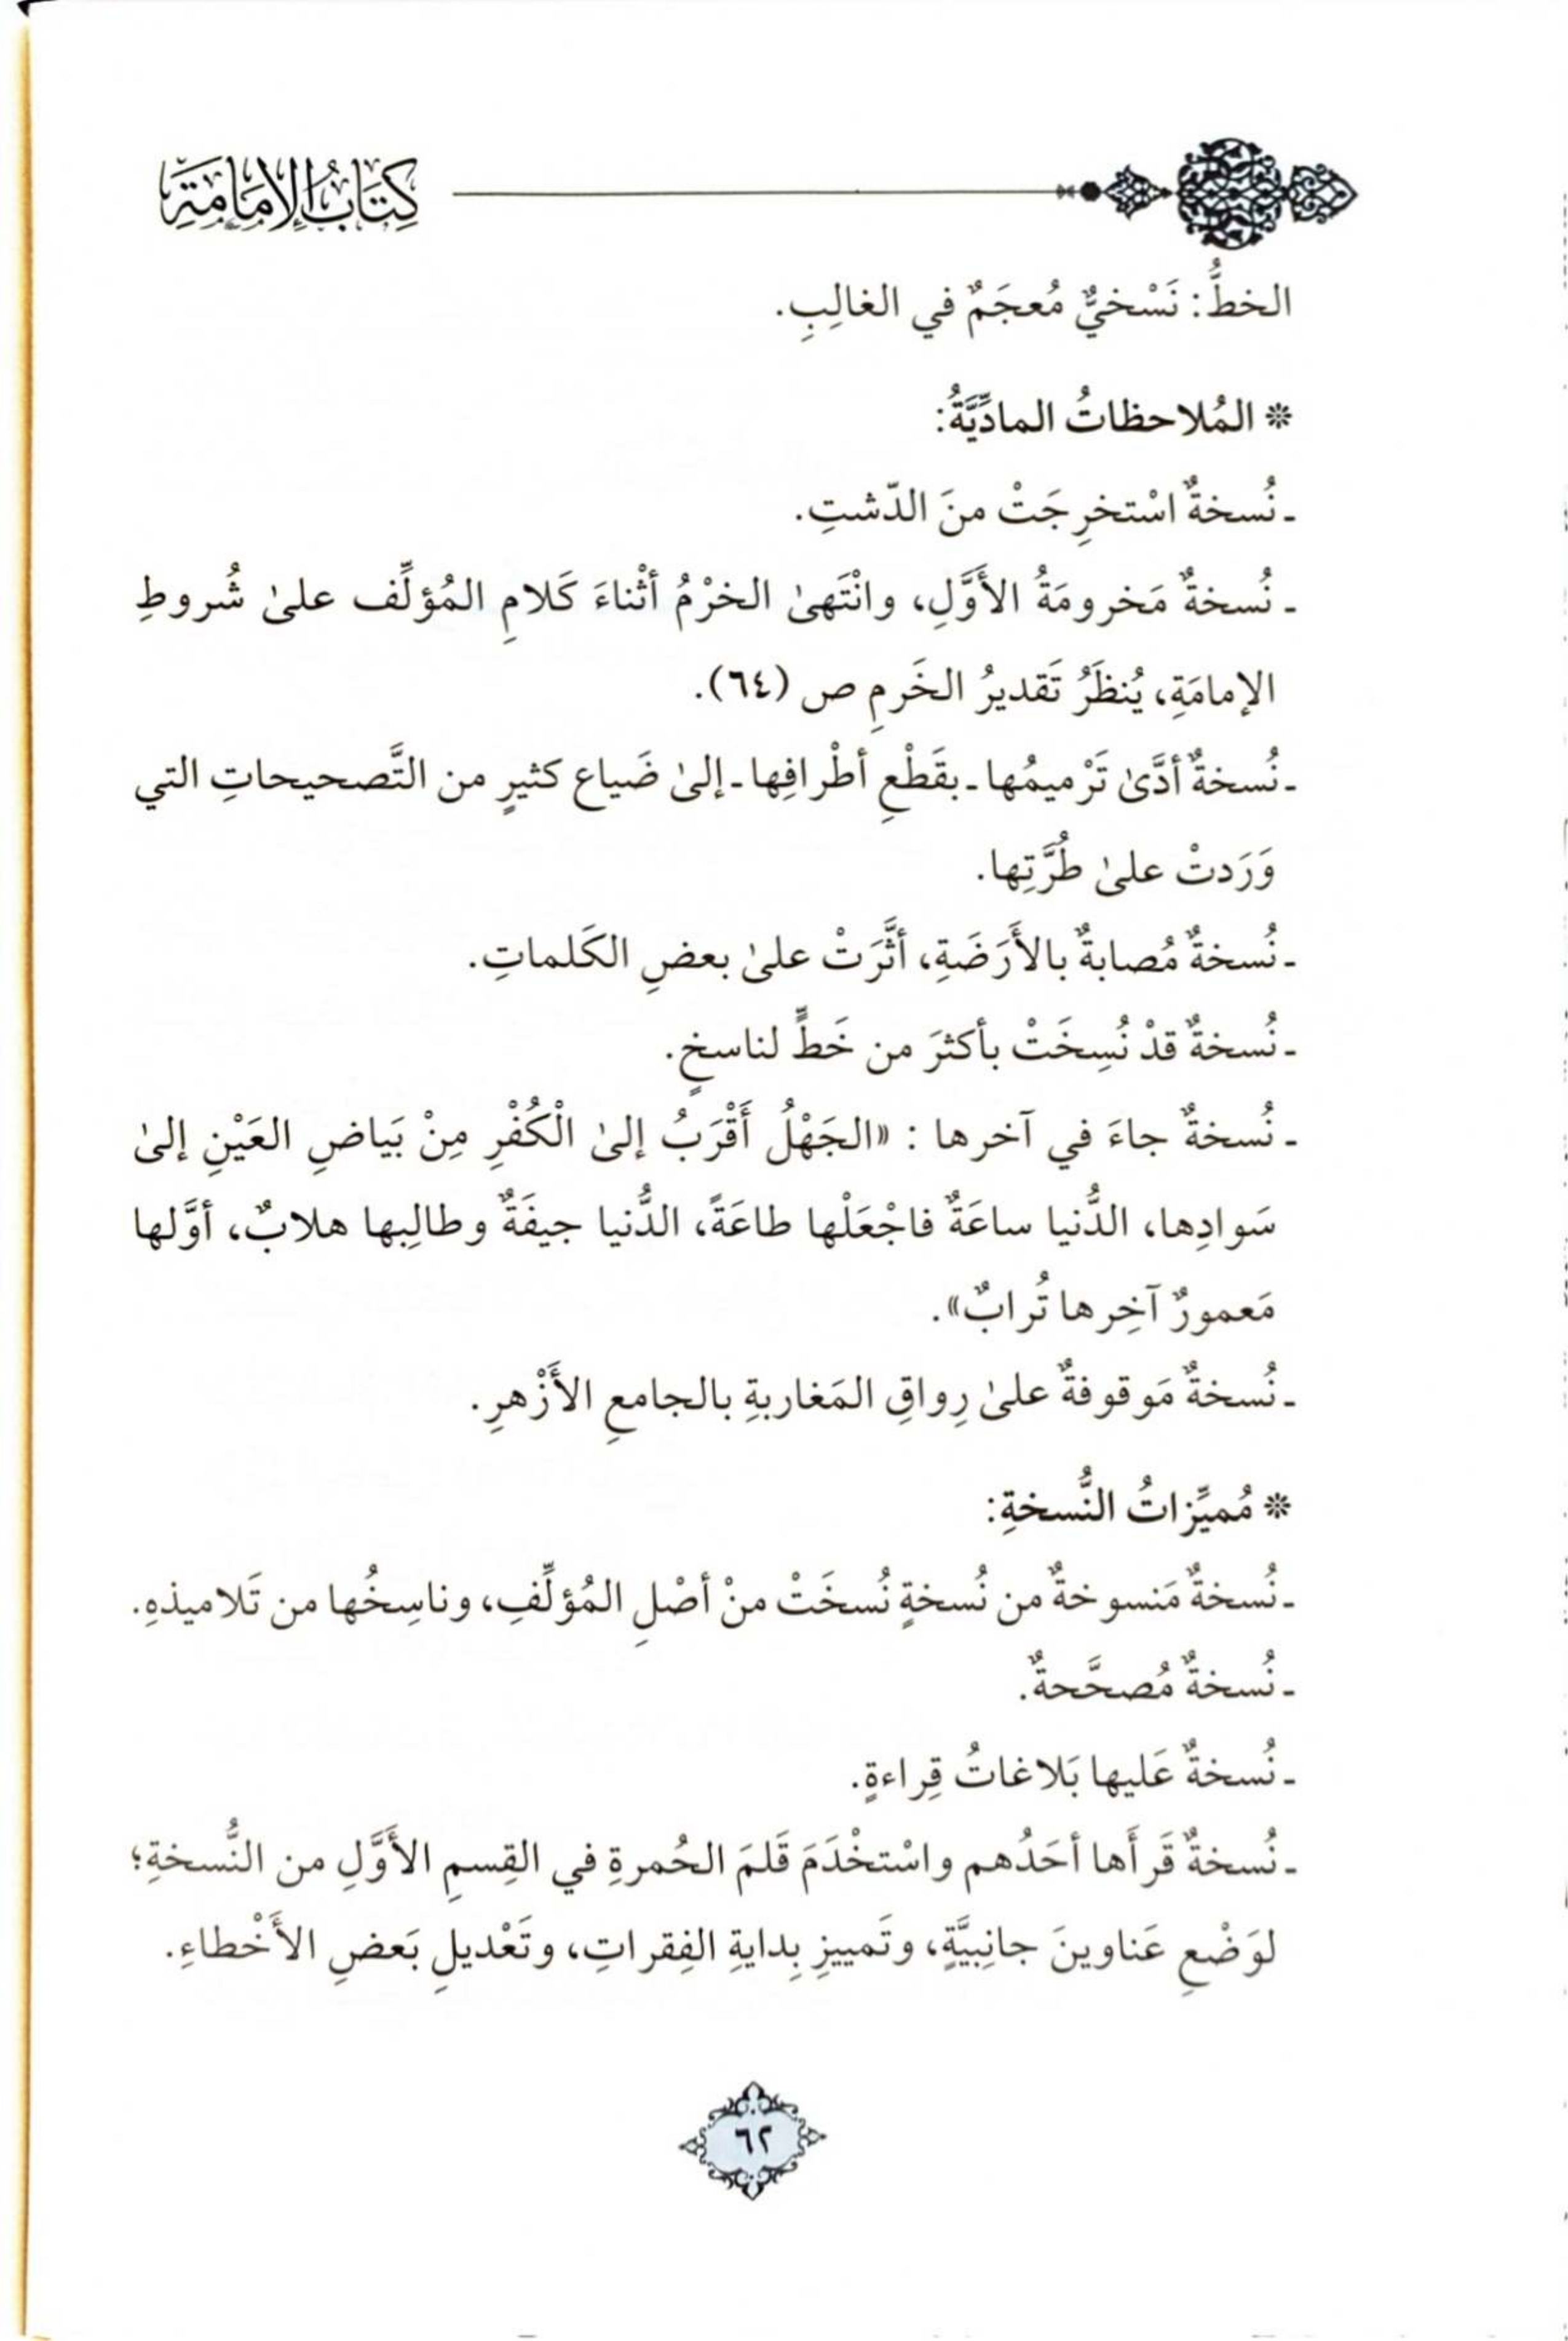 كِتَابُ الإِمَامَةِ
الخطُّ: نَسْخيٌّ مُعجَمٌ في الغالِبِ.
* المُلاحظاتُ المادِّيَّةُ:
ـ نُسخةٌ اسْتخرِجَتْ منَ الدّشتِ.
ـ نُسخةٌ مَخرومَةُ الأَوَّلِ، وانْتَهىٰ الخرْمُ أثْناءَ كَلامِ المُؤلِّف علىٰ شُروطِ
الإمامَةِ، يُنظَرُ تَقديرُ الخَرمِ ص (٦٤).
ـ نُسخةٌ أدَّىٰ تَرْميمُها ـ بقَطْعِ أطْرافِها ـ إلىٰ ضَياع كثيرٍ من التَّصحيحاتِ التي
وَرَدتْ علىٰ طُرَّتِها.
ـ نُسخةٌ مُصابةٌ بالأَرَضَةِ، أثَّرَتْ علىٰ بعضِ الكَلماتِ.
ـ نُسخةٌ قدْ نُسِخَتْ بأكثرَ من خَطٍّ لناسخٍ.
ـ نُسخةٌ جاءَ في آخرها : «الجَهْلُ أَقْرَبُ إلىٰ الْكُفْرِ مِنْ بَياضِ العَيْنِ إلىٰ
سَوادِها، الدُّنيا ساعَةٌ فاجْعَلْها طاعَةً، الدُّنيا جيفَةٌ وطالِبها هلابٌ، أوَّلها
مَعمورٌ آخِرها تُرابٌ».
ـ نُسخةٌ مَوقوفةٌ علىٰ رِواقِ المَغاربةِ بالجامعِ الأَزْهرِ.
* مُميِّزاتُ النُّسخةِ:
ـ نُسخةٌ مَنسوخةٌ من نُسخةٍ نُسخَتْ منْ أصْلِ المُؤلِّفِ، وناسِخُها من تَلاميذهِ.
ـ نُسخةٌ مُصحَّحةٌ.
ـ نُسخةٌ عَليها بَلاغاتُ قِراءةٍ.
ـ نُسخةٌ قَرأَها أحَدُهم واسْتخْدَمَ قَلمَ الحُمرةِ في القِسمِ الأَوَّلِ من النُّسخةِ؛
لوَضْعِ عَناوينَ جانِبيَّةٍ، وتَمييزِ بِدايةِ الفِقراتِ، وتَعْديلِ بَعضِ الأَخْطاءِ.
٦٢